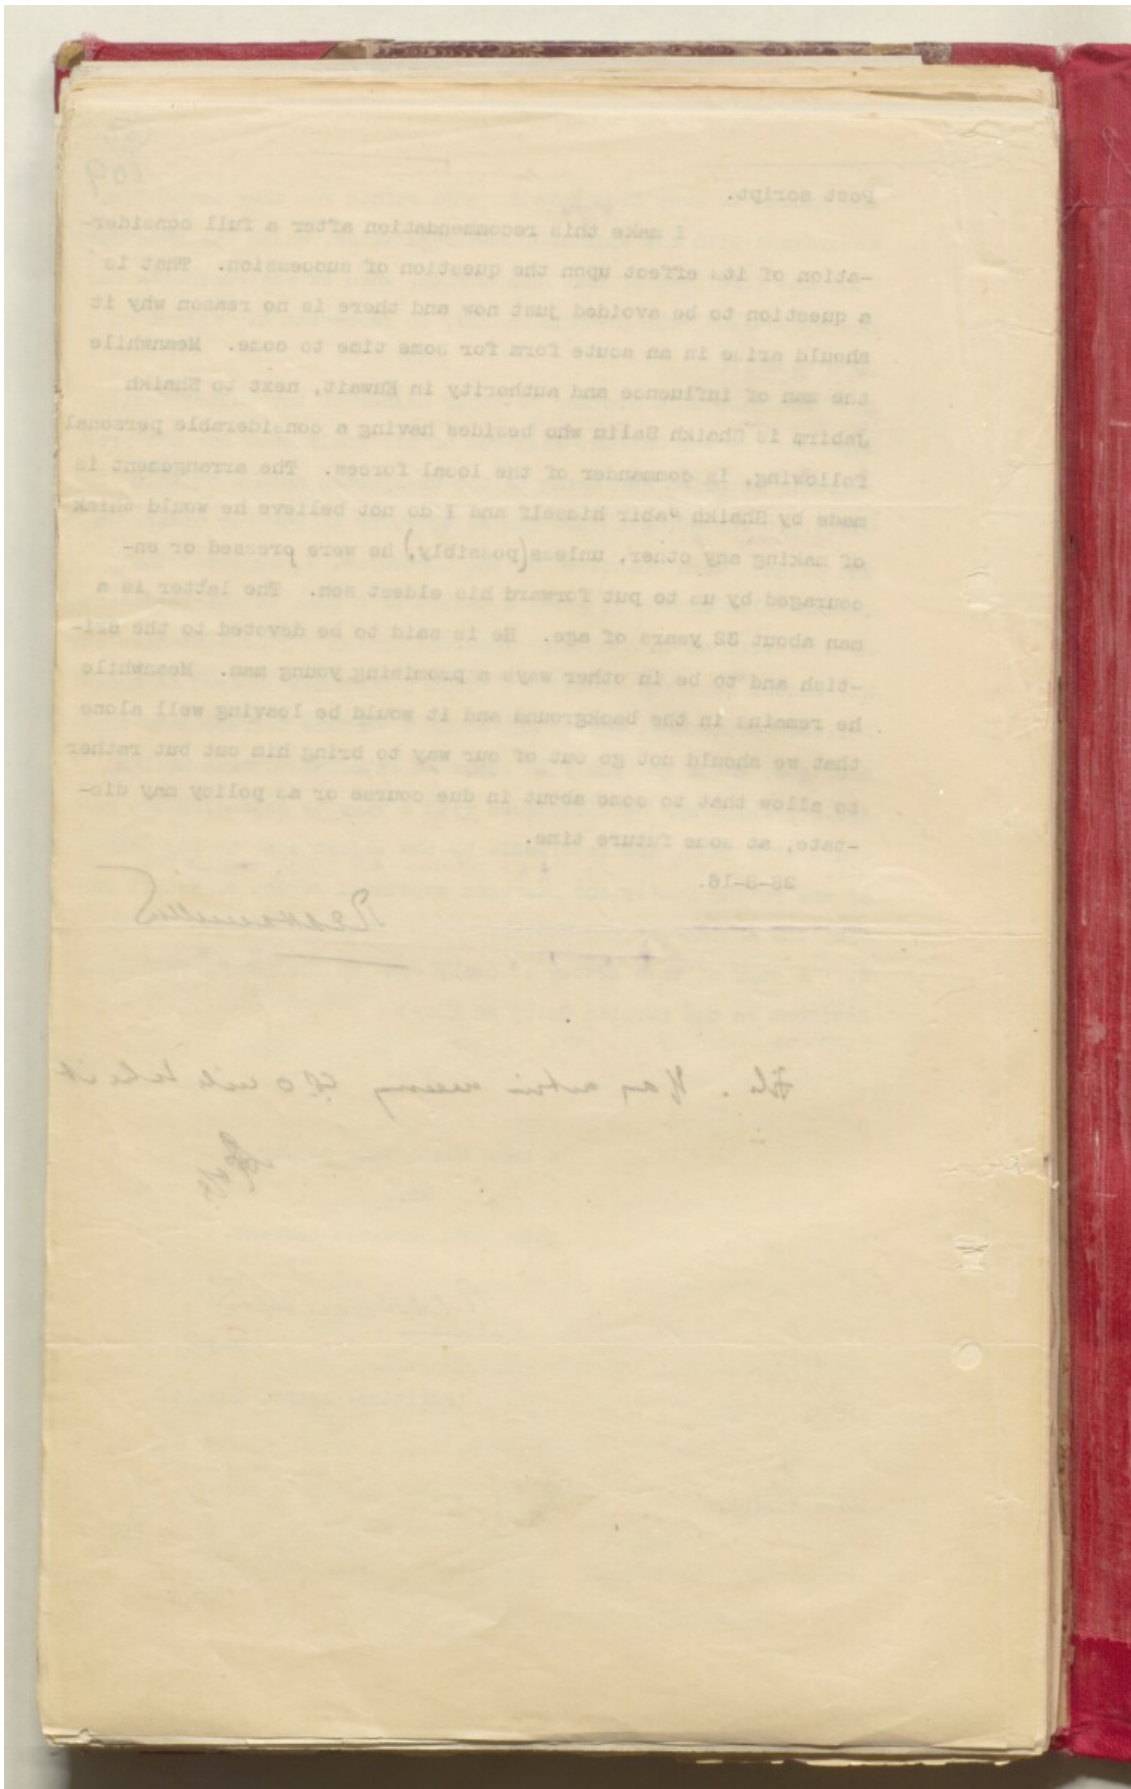 109
Post script.
I make this recommendation after a full consider-
-ation of its effect upon the question of succession. That is
a question to be avoided just now and there is no reason why it
should arise in an acute form for some time to come. Meanwhile
the man of influence and authority in Kuwait, next to Shaikh
Jabirm is Shaikh Salim who besides having a considerable personal
following, is commander of the local forces. The arrangement is
made by Shaikh Jabir himself and I do not believe he would think
of making any other, unless (possibly,) he were pressed or en-
couraged by us to put forward his eldest son. The latter is a
man about 32 years of age. He is said to be devoted to the Bri-
-tish and to be in other ways a promising young man. Meanwhile
he remains in the background and it would be leaving well alone
that we should not go out of our way to bring him out but rather
to allow that to come about in due course or as policy may dic-
-tate, at some future time.
28-8-16.